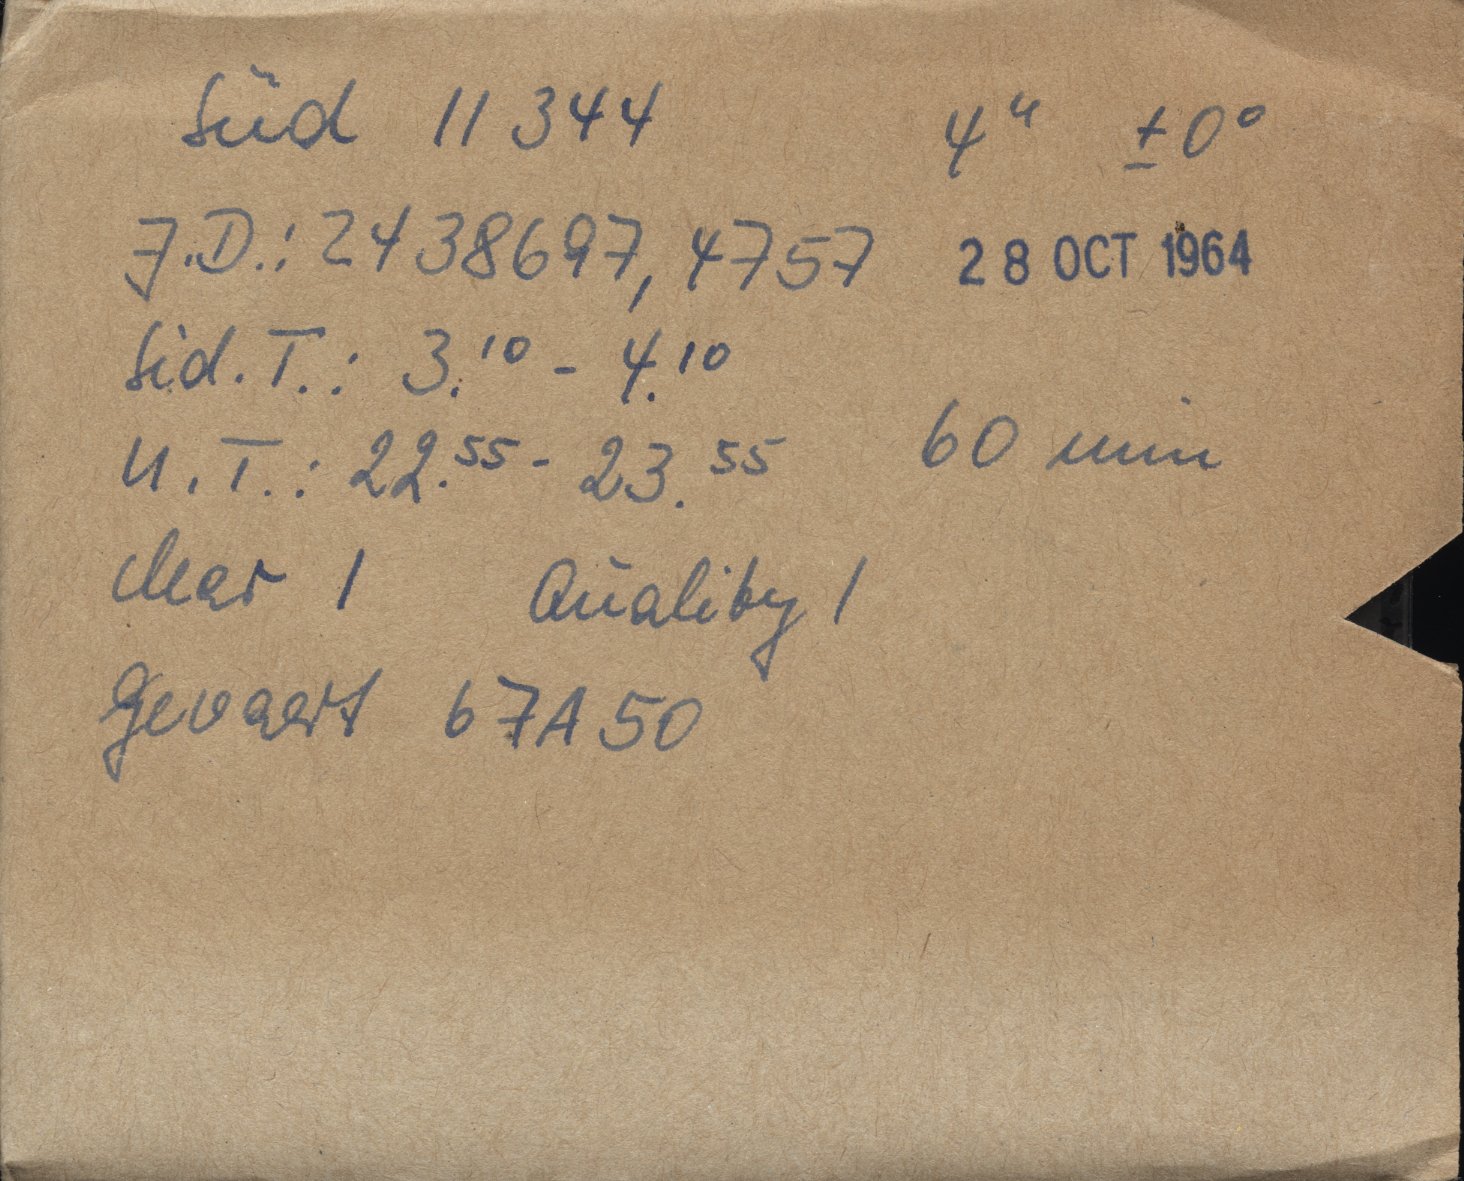 Süd 11344 4ʰ ±0°
J.D.: 2438697,4757 28 OCT 1964
Sid. T.: 3.¹⁰ - 4.¹⁰
U.T.: 22.⁵⁵ - 23.⁵⁵ 60 min
clear 1 Quality 1
Gevaert 67A50